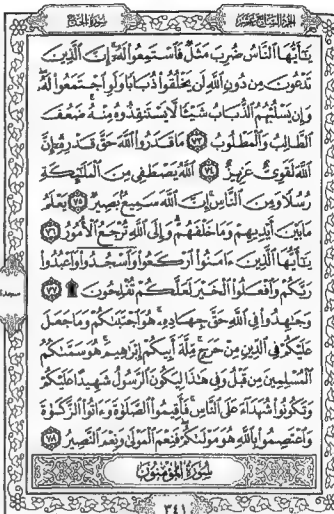 سُورَةُ الحَجِّ
الجُزْءُ السَّابِعَ عَشَرَ
يَٰٓأَيُّهَا ٱلنَّاسُ ضُرِبَ مَثَلٌ فَٱسْتَمِعُوا۟ لَهُۥٓ إِنَّ ٱلَّذِينَ
تَدْعُونَ مِن دُونِ ٱللَّهِ لَن يَخْلُقُوا۟ ذُبَابًا وَلَوِ ٱجْتَمَعُوا۟ لَهُۥ
وَإِن يَسْلُبْهُمُ ٱلذُّبَابُ شَيْـًٔا لَّا يَسْتَنقِذُوهُ مِنْهُ ضَعُفَ
ٱلطَّالِبُ وَٱلْمَطْلُوبُ ٧٣ مَا قَدَرُوا۟ ٱللَّهَ حَقَّ قَدْرِهِۦٓ إِنَّ
ٱللَّهَ لَقَوِىٌّ عَزِيزٌ ٧٤ ٱللَّهُ يَصْطَفِى مِنَ ٱلْمَلَٰٓئِكَةِ
رُسُلًا وَمِنَ ٱلنَّاسِ إِنَّ ٱللَّهَ سَمِيعٌۢ بَصِيرٌ ٧٥ يَعْلَمُ
مَا بَيْنَ أَيْدِيهِمْ وَمَا خَلْفَهُمْ وَإِلَى ٱللَّهِ تُرْجَعُ ٱلْأُمُورُ ٧٦
يَٰٓأَيُّهَا ٱلَّذِينَ ءَامَنُوا۟ ٱرْكَعُوا۟ وَٱسْجُدُوا۟ وَٱعْبُدُوا۟
رَبَّكُمْ وَٱفْعَلُوا۟ ٱلْخَيْرَ لَعَلَّكُمْ تُفْلِحُونَ ۩ ٧٧
سجدة
وَجَٰهِدُوا۟ فِى ٱللَّهِ حَقَّ جِهَادِهِۦ هُوَ ٱجْتَبَىٰكُمْ وَمَا جَعَلَ
عَلَيْكُمْ فِى ٱلدِّينِ مِنْ حَرَجٍ مِّلَّةَ أَبِيكُمْ إِبْرَٰهِيمَ هُوَ سَمَّىٰكُمُ
ٱلْمُسْلِمِينَ مِن قَبْلُ وَفِى هَٰذَا لِيَكُونَ ٱلرَّسُولُ شَهِيدًا عَلَيْكُمْ
وَتَكُونُوا۟ شُهَدَآءَ عَلَى ٱلنَّاسِ فَأَقِيمُوا۟ ٱلصَّلَوٰةَ وَءَاتُوا۟ ٱلزَّكَوٰةَ
وَٱعْتَصِمُوا۟ بِٱللَّهِ هُوَ مَوْلَىٰكُمْ فَنِعْمَ ٱلْمَوْلَىٰ وَنِعْمَ ٱلنَّصِيرُ ٧٨
سُورَةُ المُؤْمِنُونَ
٣٤١